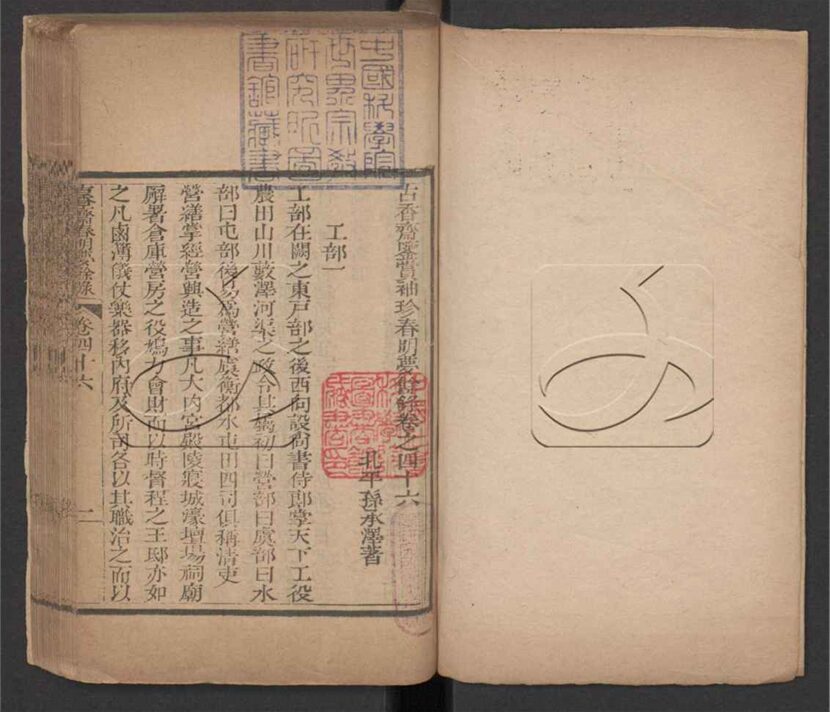 中國科學院
世界宗教
研究所圖
書館藏書
古香齋鑒賞袖珍春明夢餘錄卷之四十六
北平孫承澤著
工部一
工部在闕之東戶部之後西向設尚書侍郎掌天下工役
農田山川藪澤河渠之政令其屬初曰營部曰虞部曰水
部曰屯部後易爲營繕虞衡都水屯田四司俱稱清吏
營繕掌經營興造之事凡大內宮殿陵寢城濠壇場祠廟
廨署倉庫營房之役鳩力會財而以時督程之王邸亦如
之凡鹵簿儀仗樂器移內府及所司各以其職治之而以
古香齋春明夢餘錄 卷四十六